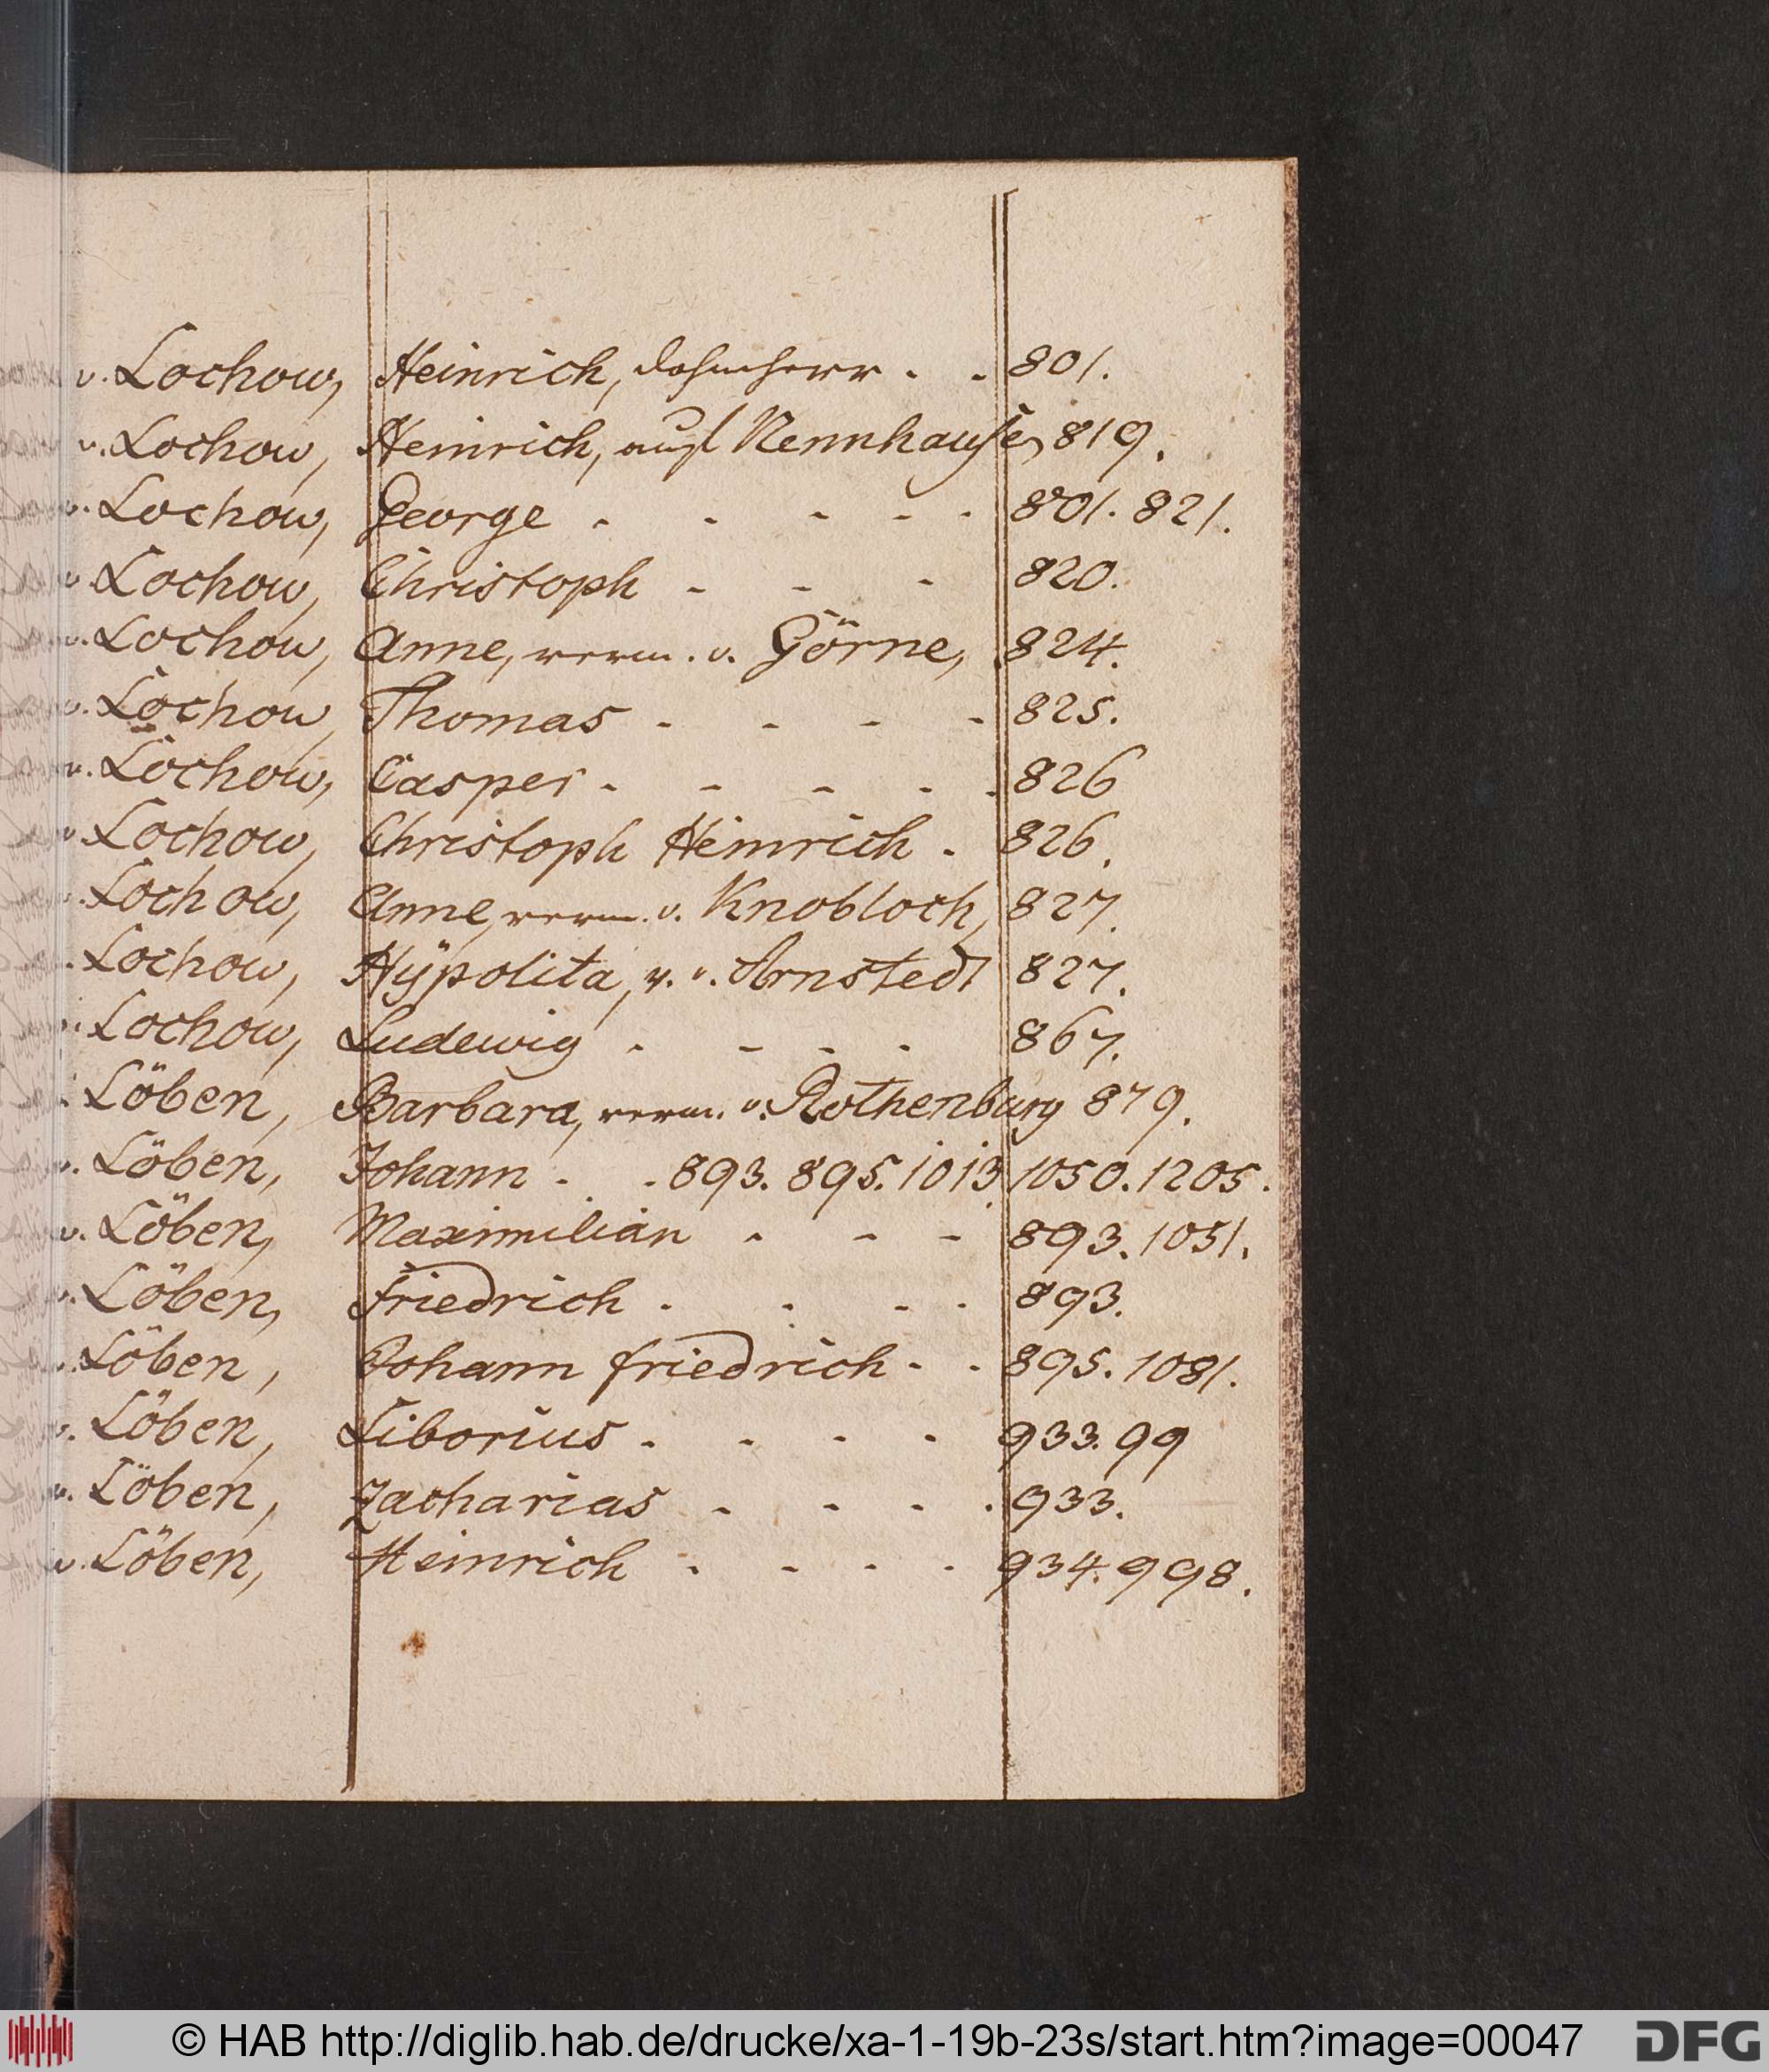 v. Lochow, Heinrich, Dohmherr - - 801.
v. Lochow, Heinrich, auf Nennhausen 819.
v. Lochow, George - - - - - 801. 821.
v. Lochow, Christoph - - - 820.
v. Lochow, Anne, verm. v. Görne, 824.
v. Lochow, Thomas - - - - 825.
v. Lochow, Casper - - - - - 826
v. Lochow, Christoph Heinrich - 826.
v. Lochow, Anne, verm. v. Knobloch, 827.
v. Lochow, Hÿpolita, v. v. Arnstedt 827.
v. Lochow, Ludewig - - - - 867.
v. Löben, Barbara, verm. v. Rothenburg 879.
v. Löben, Johann - - 893. 895. 1013. 1050. 1205.
v. Löben, Maximilian - - - 893. 1051.
v. Löben, Friedrich - - - - 893.
v. Löben, Johann Friedrich - - 895. 1081.
v. Löben, Liborius - - - - 933. 99
v. Löben, Zacharias - - - - 933.
v. Löben, Heinrich - - - - 934. 998.
© HAB http://diglib.hab.de/drucke/xa-1-19b-23s/start.htm?image=00047
DFG